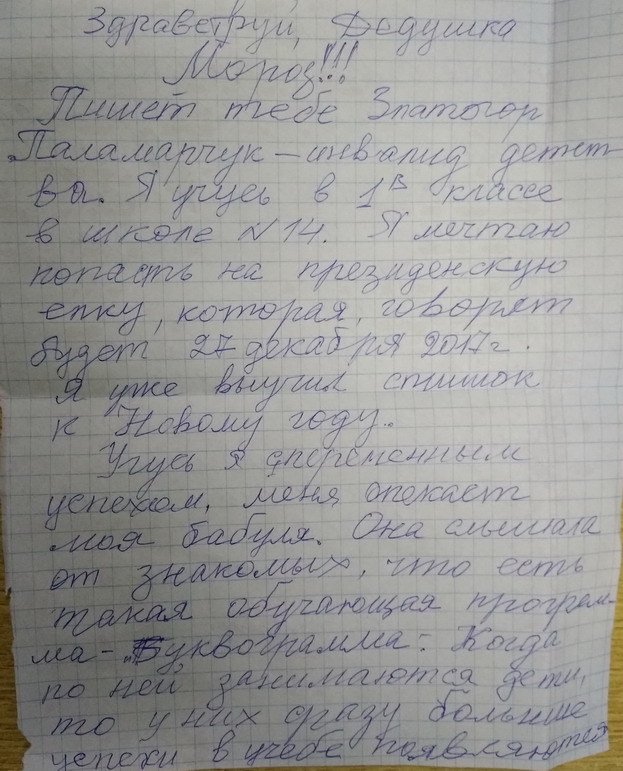 Здравствуй, Дедушка
Мороз!!!
Пишет тебе Златогор
Паламарчук - инвалид детст-
ва. Я учусь в 1В классе
в школе N14. Я мечтаю
попасть на президенскую
елку, которая, говорят
будет 27 декабря 2017г.
Я уже выучил стишок
к Новому году.
Учусь я с переменным
успехом, меня опекает
моя бабуля. Она слышала
от знакомых, что есть
такая обучающая програм-
ма - "Буквограмма". Когда
по ней занимаются дети,
то у них сразу больше
успехи в учебе появляются